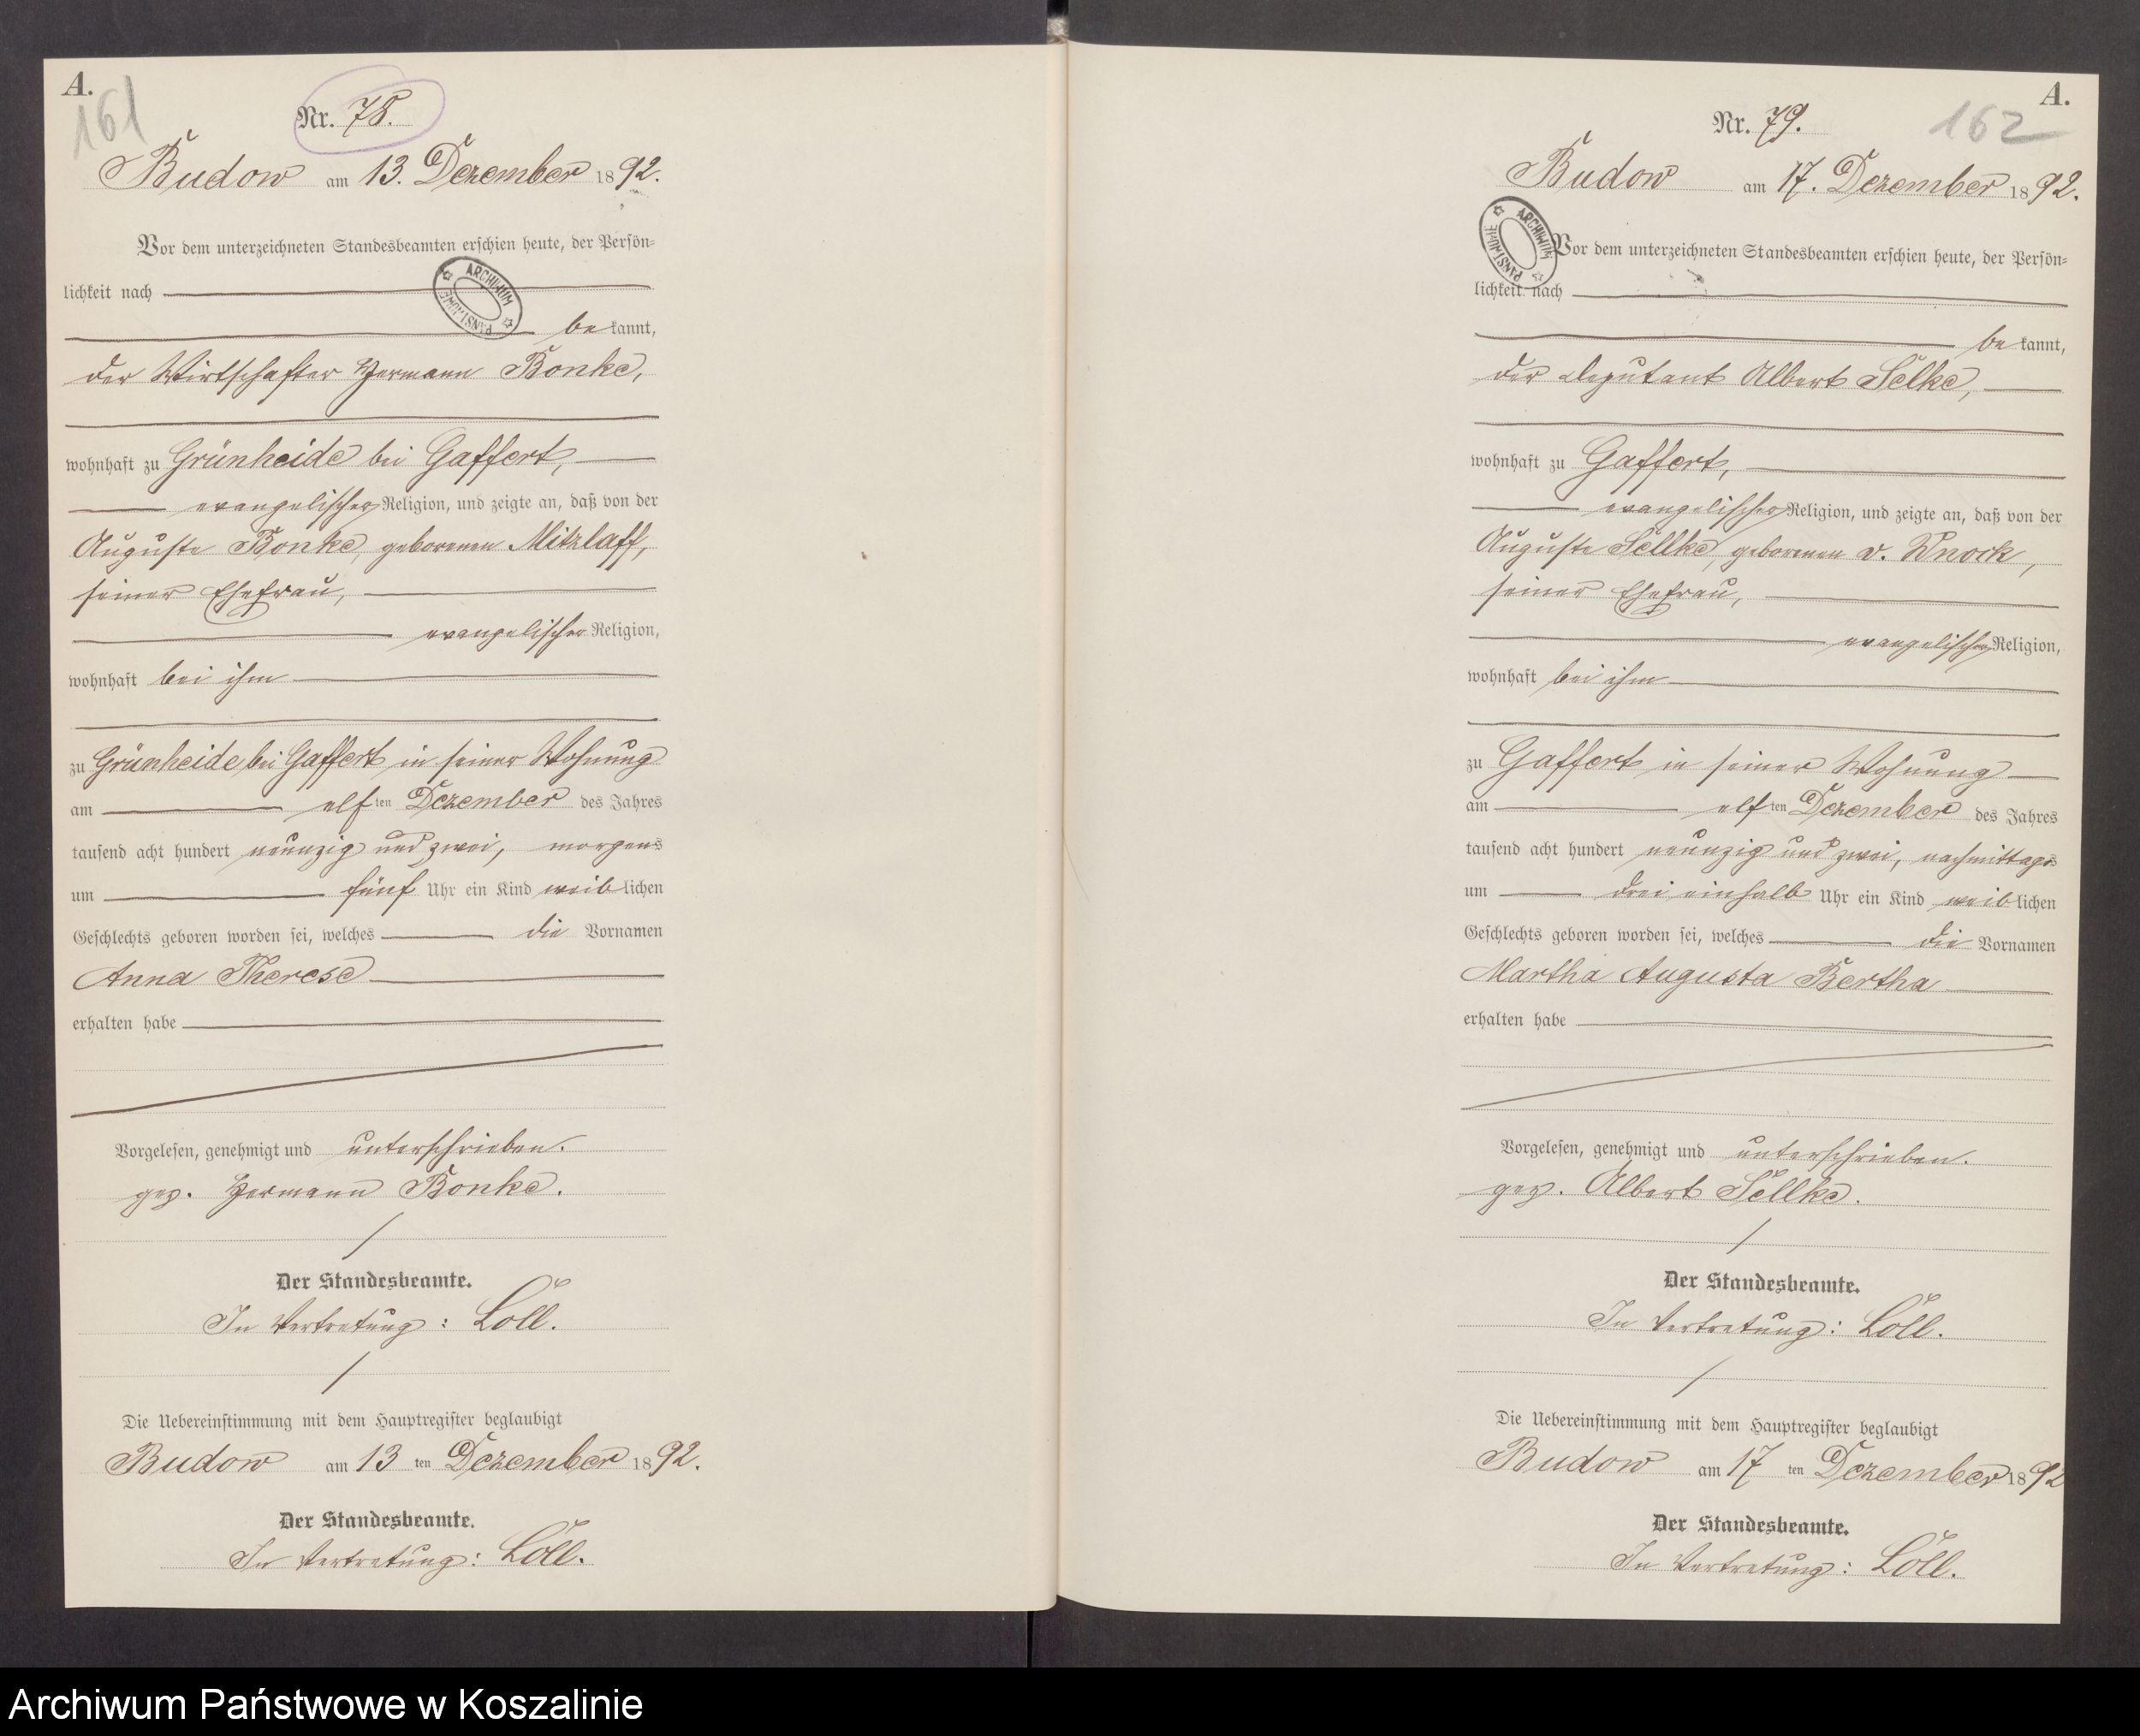 A.
161
Nr. 78.
Budow am 13. Dezember 1892.
Vor dem unterzeichneten Standesbeamten erschien heute, der Persön=
lichkeit nach
bekannt,
der Wirtschafter Hermann Bonke,
wohnhaft zu Grünheide bei Gaffert,
evangelischer Religion, und zeigte an, daß von der
Auguste Bonke, geborenen Mitzlaff,
seiner Ehefrau,
evangelischer Religion,
wohnhaft bei ihm
zu Grünheide bei Gaffert in seiner Wohnung
am elften Dezember des Jahres
tausend acht hundert neunzig und zwei, morgens
um fünf Uhr ein Kind weiblichen
Geschlechts geboren worden sei, welches die Vornamen
Anna Therese
erhalten habe
Vorgelesen, genehmigt und unterschrieben.
gez. Hermann Bonke.
Der Standesbeamte.
In Vertretung: Löll.
Die Uebereinstimmung mit dem Hauptregister beglaubigt
Budow am 13 ten Dezember 1892.
Der Standesbeamte.
In Vertretung: Löll.
ARCHIWUM PAŃSTWOWE
A.
162
Nr. 79.
Budow am 17. Dezember 1892.
ARCHIWUM PAŃSTWOWE
Vor dem unterzeichneten Standesbeamten erschien heute, der Persön=
lichkeit nach
bekannt,
der Deputant Albert Sellke,
wohnhaft zu Gaffert,
evangelischer Religion, und zeigte an, daß von der
Auguste Sellke, geborenen v.
seiner Ehefrau,
evangelischer Religion,
wohnhaft bei ihm
zu Gaffert in seiner Wohnung
am elften Dezember des Jahres
tausend acht hundert neunzig und zwei, nachmittags
um drei einhalb Uhr ein Kind weiblichen
Geschlechts geboren worden sei, welches die Vornamen
Martha Augusta Bertha
erhalten habe
Vorgelesen, genehmigt und unterschrieben.
gez. Albert Sellke.
Der Standesbeamte.
In Vertretung: Löll.
Die Uebereinstimmung mit dem Hauptregister beglaubigt
Budow am 17 ten Dezember 1892
Der Standesbeamte.
In Vertretung: Löll.
Archiwum Państwowe w Koszalinie